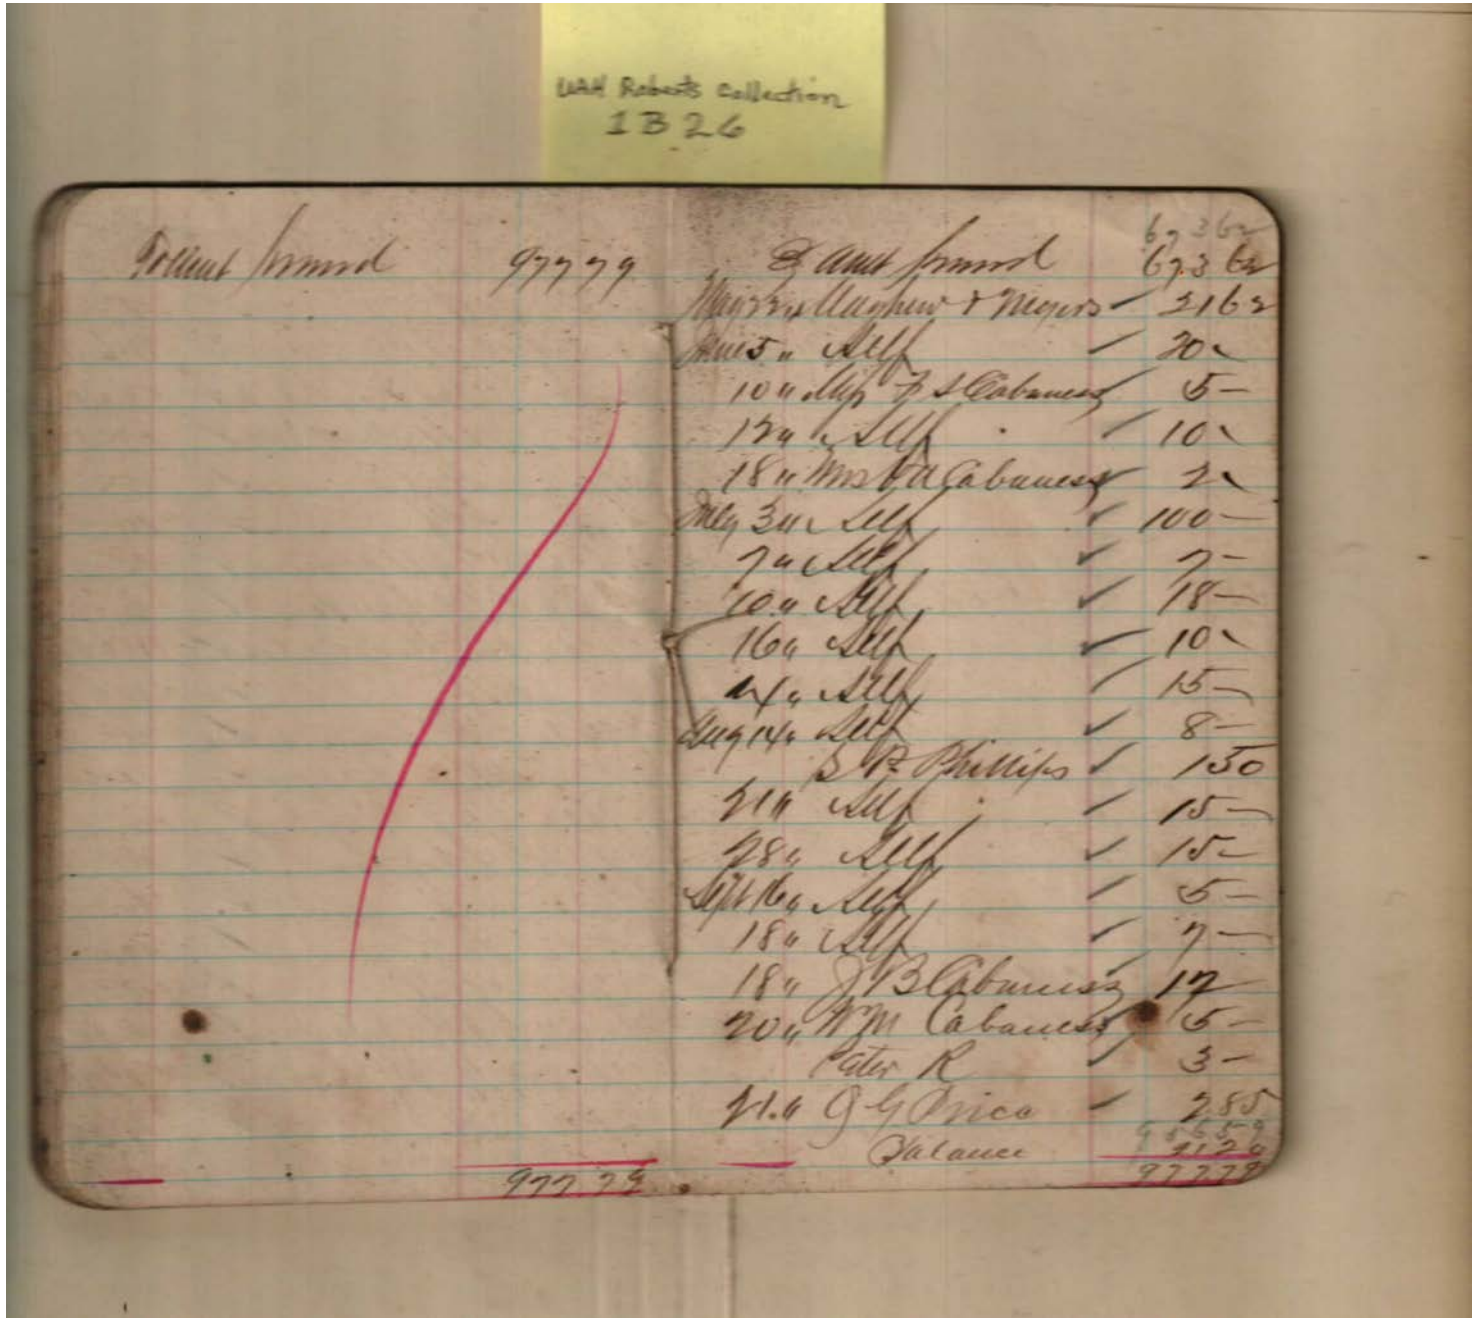 UAH Roberts Collection
1B26
forward 977 79
67 3 62
Amt forward 673 62
May 22 " Mayhew & Meyers ✓ 21 62
June 5 " Self ✓ 20
10 " Miss F S Cabaness ✓ 5 –
12 " Self ✓ 10
18 " Mrs Cabaness ✓ 2
July 3 " Self ✓ 100 –
7 " Self ✓ 7 –
10 " Self ✓ 18 –
16 " Self ✓ 10
24 " Self ✓ 15 –
Aug 14 " Self ✓ 8 –
S B Phillips ✓ 1 50
21 " Self ✓ 15 –
28 " Self ✓ 15 –
Sept 16 " Self ✓ 5 –
18 " Self ✓ 7 –
18 " J B Cabaness ✓ 12
20 " W M Cabaness ✓ 5 –
R ✓ 3 –
21 " G G Price ✓ 2 85
Balance
977 79 977 79